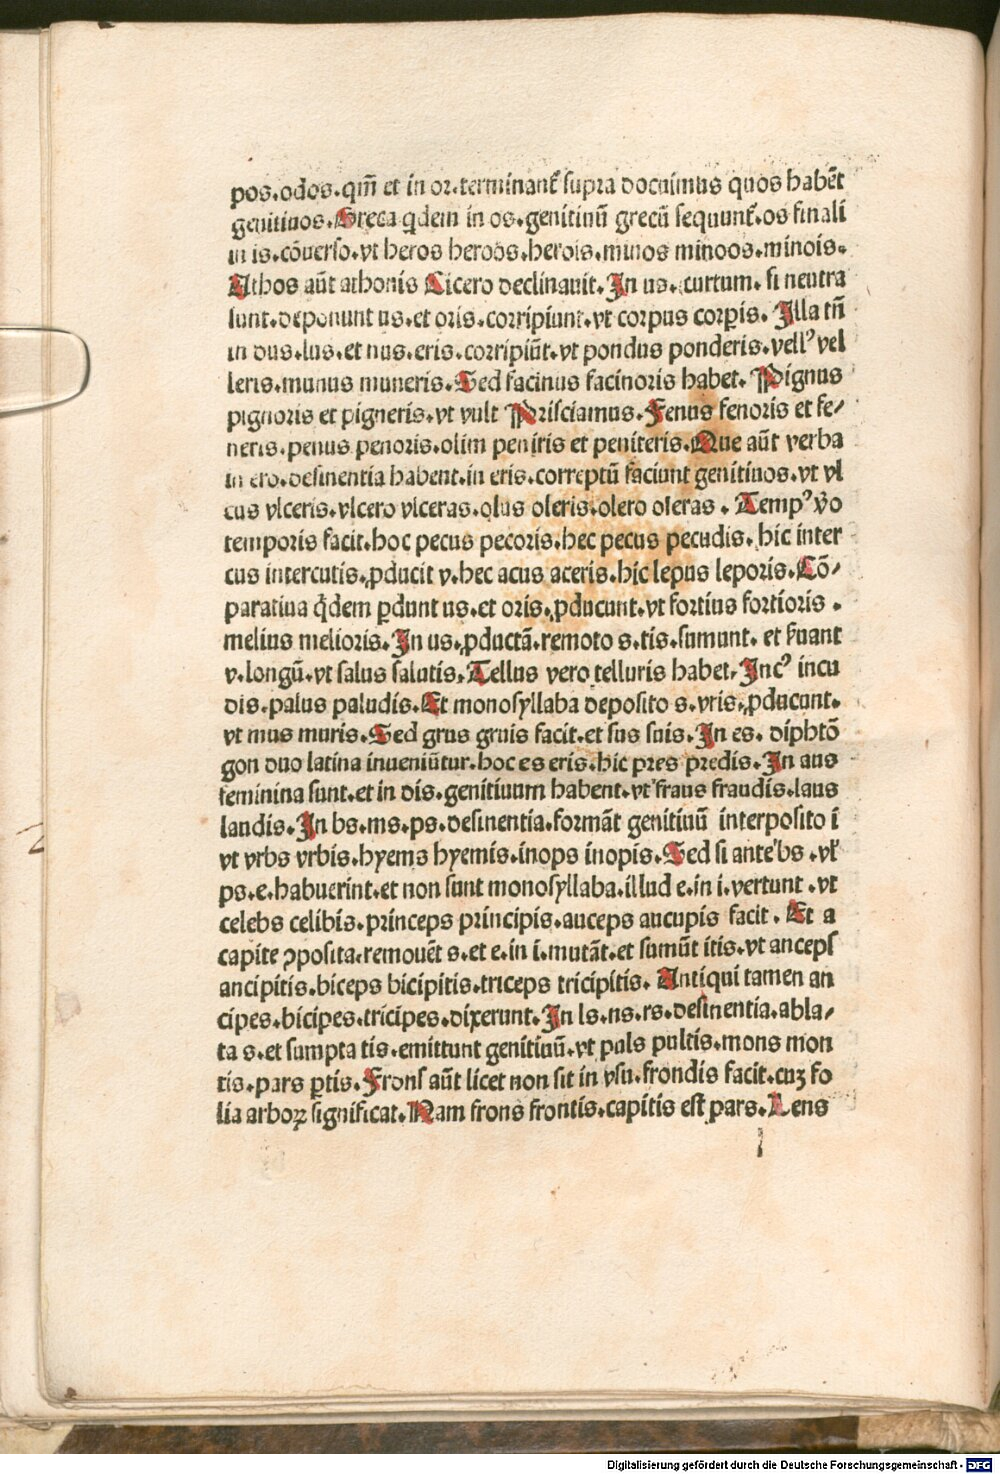 pos.odos.qm̄ et in or.terminant᷑ supra docuimus quos habēt
genitiuos.Greca qdem in os.genitiuū grecū sequunt᷑.os finali
in is.cōuerso.vt heros heroos.herois.minos minoos.minois.
Athos aūt athonis Cicero declinauit.In us.curtum.si neutra
sunt.deponunt us.et oris.corripiunt.vt corpus corꝑis. Illa tn̄
in dus.lus.et nus.eris.corripiūt.vt pondus ponderis.vellꝰ vel
leris.munus muneris.Sed facinus facinoris habet. Pignus
pignoris et pigneris.vt vult Prisciamus.Fenus fenoris et fe/
neris.penus penoris.olim peniris et peniteris.Que aūt verba
in ero.desinentia habent.in eris.correptū faciunt genitiuos.vt vl
cus vlceris.vlcero vlceras.olus oleris.olero oleras . Tempꝰ v̄o
temporis facit.hoc pecus pecoris.hec pecus pecudis.hic inter
cus intercutis.ꝓducit v.hec acus aceris.hic lepus leporis.Cō/
paratiua q̇dem ꝑdunt us.et oris.ꝓducunt.vt fortius fortioris .
melius melioris.In us.ꝓductā.remoto s.tis.sumunt. et ẜuant
v.longū.vt salus salutis.Tellus vero telluris habet.Incꝰ incu
dis.palus paludis.Et monosyllaba deposito s.vris.ꝓducunt.
vt mus muris.Sed grus gruis facit.et sus suis.In es. diphtō
gon duo latina inueniūtur.hoc es eris.hic pres predis.In aus
feminina sunt.et in dis.genitiuum habent.vt fraus fraudis.laus
laudis.In bs.ms.ps.desinentia.formāt genitiuū interposito ī
vt vrbs vrbis.hyems hyemis.inops inopis.Sed si ante bs .vl̕
ps.e.habuerint.et non sunt monosyllaba.illud e.in i.vertunt .vt
celebs celibis.princeps principis.auceps aucupis facit . Et a
capite ꝯposita.remouēt s.et e.in ī.mutāt.et sumūt itis.vt anceps
ancipitis.biceps bicipitis.triceps tricipitis. Antiqui tamen an
cipes.bicipes.tricipes.dixerunt.In ls.ns.rs.desinentia.abla/
ta s.et sumpta tis.emittunt genitiuū.vt puls pultis.mons mon
tis.pars ꝑtis.Frons aūt licet non sit in vsu.frondis facit.cuꝫ fo
lia arboꝝ significat.Nam frons frontis.capitis est pars.Lens
Digitalisierung gefördert durch die Deutsche Forschungsgemeinschaft - DFG